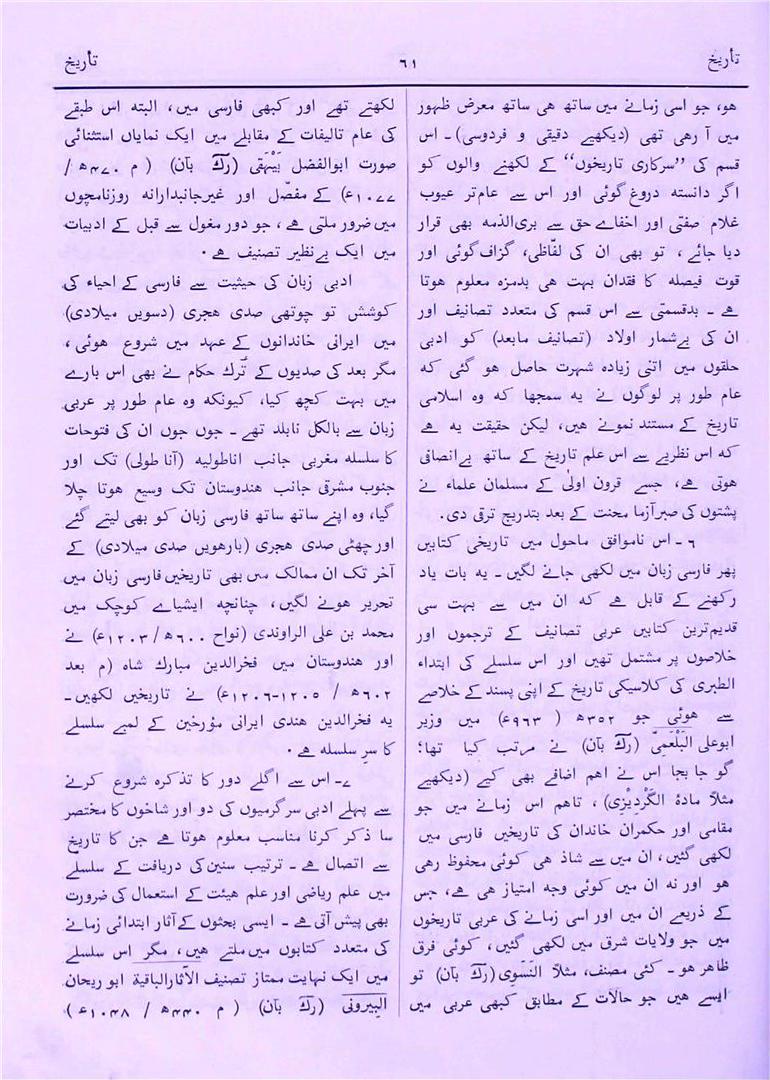 تأریخ ٦١ تأریخ
هو، جو اسی زمانے میں ساتھ هی ساتھ معرض ظہور
میں آ رهی تھی (دیکھیے دقیقی و فردوسی)۔ اس
قسم کی ”سرکاری تاریخوں“ کے لکھنے والوں کو
اگر دانسته دروغ گوئی اور اس سے عام تر عیوب
غلام صفتی اور اخفاے حق سے بری الذمه بھی قرار
دیا جائے، تو بھی ان کی لفّاظی، گزاف گوئی اور
قوت فیصله کا فقدان بہت هی بدمزه معلوم هوتا
هے ۔ بدقسمتی سے اس قسم کی متعدد تصانیف اور
ان کی بےشمار اولاد (تصانیف مابعد) کو ادبی
حلقوں میں اتنی زیاده شہرت حاصل هو گئی که
عام طور پر لوگوں نے یه سمجھا که وه اسلامی
تاریخ کے مستند نمونے هیں، لیکن حقیقت یه هے
که اس نظریے سے اس علم تاریخ کے ساتھ بے انصافی
هوتی هے، جسے قرون اولٰی کے مسلمان علماء نے
پشتوں کی صبر آزما محنت کے بعد بتدریج ترقی دی.
٦ ۔ اس ناموافق ماحول میں تاریخی کتابیں
پھر فارسی زبان میں لکھی جانے لگیں۔ یه بات یاد
رکھنے کے قابل هے که ان میں سے بہت سی
قدیم ترین کتابیں عربی تصانیف کے ترجموں اور
خلاصوں پر مشتمل تھیں اور اس سلسلے کی ابتداء
الطبری کی کلاسیکی تاریخ کے اپنی پسند کے خلاصے
سے هوئی جو ۳۵۲ھ (۹۶۳ء) میں وزیر
ابوعلی البَلْعَمِیّ (رک بآن) نے مرتب کیا تھا؛
گو جا بجا اس نے اهم اضافے بھی کیے (دیکھیے
مثلاً مادۂ الگَرْدِیْزِی)، تاهم اس زمانے میں جو
مقامی اور حکمران خاندان کی تاریخیں فارسی میں
لکھی گئیں، ان میں سے شاذ هی کوئی محفوظ رهی
هو اور نه ان میں کوئی وجه امتیاز هی هے، جس
کے ذریعے ان میں اور اسی زمانے کی عربی تاریخوں
میں جو ولایات شرق میں لکھی گئیں، کوئی فرق
ظاهر هو۔ کئی مصنف، مثلاً النَسَوِی (رک بآن) تو
ایسے هیں جو حالات کے مطابق کبھی عربی میں
لکھتے تھے اور کبھی فارسی میں، البته اس طبقے
کی عام تالیفات کے مقابلے میں ایک نمایاں استثنائی
صورت ابوالفضل بَیْہَقی (رک بآن) (م ۴۷۰ھ /
۱۰۷۷ء) کے مفصّل اور غیرجانبدارانه روزنامچوں
میں ضرور ملتی هے، جو دور مغول سے قبل کے ادبیات
میں ایک بےنظیر تصنیف هے.
ادبی زبان کی حیثیت سے فارسی کے احیاء کی
کوشش تو چوتھی صدی هجری (دسویں میلادی)
میں ایرانی خاندانوں کے عہد میں شروع هوئی،
مگر بعد کی صدیوں کے تُرک حکام نے بھی اس بارے
میں بہت کچھ کیا، کیونکه وه عام طور پر عربی
زبان سے بالکل نابلد تھے ۔ جوں جوں ان کی فتوحات
کا سلسله مغربی جانب اناطولیه (آنا طولی) تک اور
جنوب مشرقی جانب هندوستان تک وسیع هوتا چلا
گیا، وه اپنے ساتھ ساتھ فارسی زبان کو بھی لیتے گئے
اور چھٹی صدی هجری (بارهویں صدی میلادی) کے
آخر تک ان ممالک میں بھی تاریخیں فارسی زبان میں
تحریر هونے لگیں، چنانچه ایشیاے کوچک میں
محمد بن علی الراوندی (نواح ۶۰۰ھ/۱۲۰۳ء) نے
اور هندوستان میں فخرالدین مبارک شاه (م بعد
۶۰۲ھ / ۱۲۰۵-۱۲۰۶ء) نے تاریخیں لکھیں۔
یه فخرالدین هندی ایرانی مؤرخین کے لمبے سلسلے
کا سرِ سلسله هے.
۷۔ اس سے اگلے دور کا تذکره شروع کرنے
سے پہلے ادبی سرگرمیوں کی دو اور شاخوں کا مختصر
سا ذکر کرنا مناسب معلوم هوتا هے جن کا تاریخ
سے اتصال هے ۔ ترتیب سنین کی دریافت کے سلسلے
میں علم ریاضی اور علم هیئت کے استعمال کی ضرورت
بھی پیش آتی هے ۔ ایسی بحثوں کے آثار ابتدائی زمانے
کی متعدد کتابوں میں ملتے هیں، مگر اس سلسلے
میں ایک نہایت ممتاز تصنیف الآثارالباقیة ابو ریحان
البِیرونی (رک بآن) (م ۴۴۰ھ / ۱۰۴۸ء)